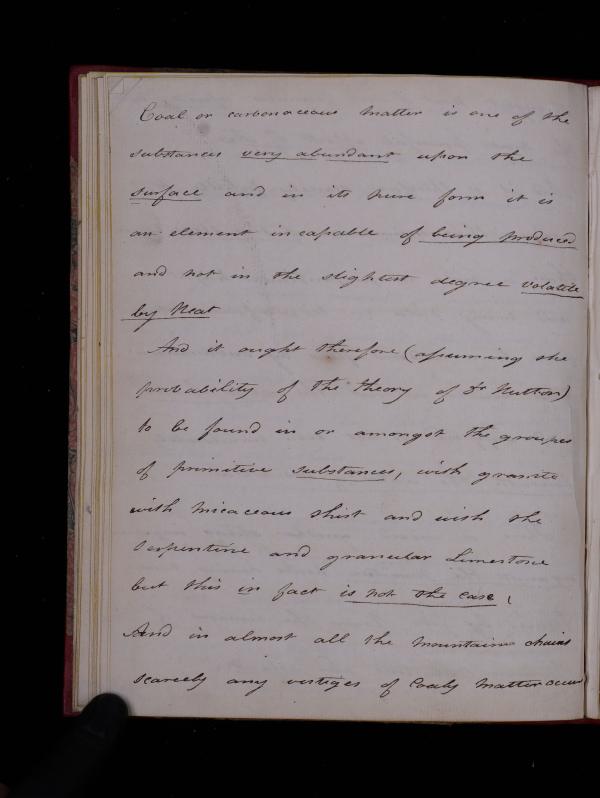 Coal or carbonaceous matter is one of the
substances very abundant upon the
surface and in its pure form it is
an element incapable of being produced
and not in the slightest degree volatile
by heat
And it ought therefore (assuming the
probability of the theory of Dr Hutton)
to be found in or amongst the groupes
of primitive substances, with granite
with micaceous shist and with the
Serpentine and granular Limestone
but this in fact is not the case,
And in almost all the mountain chains
scarcely any vestiges of Coaly matter occur